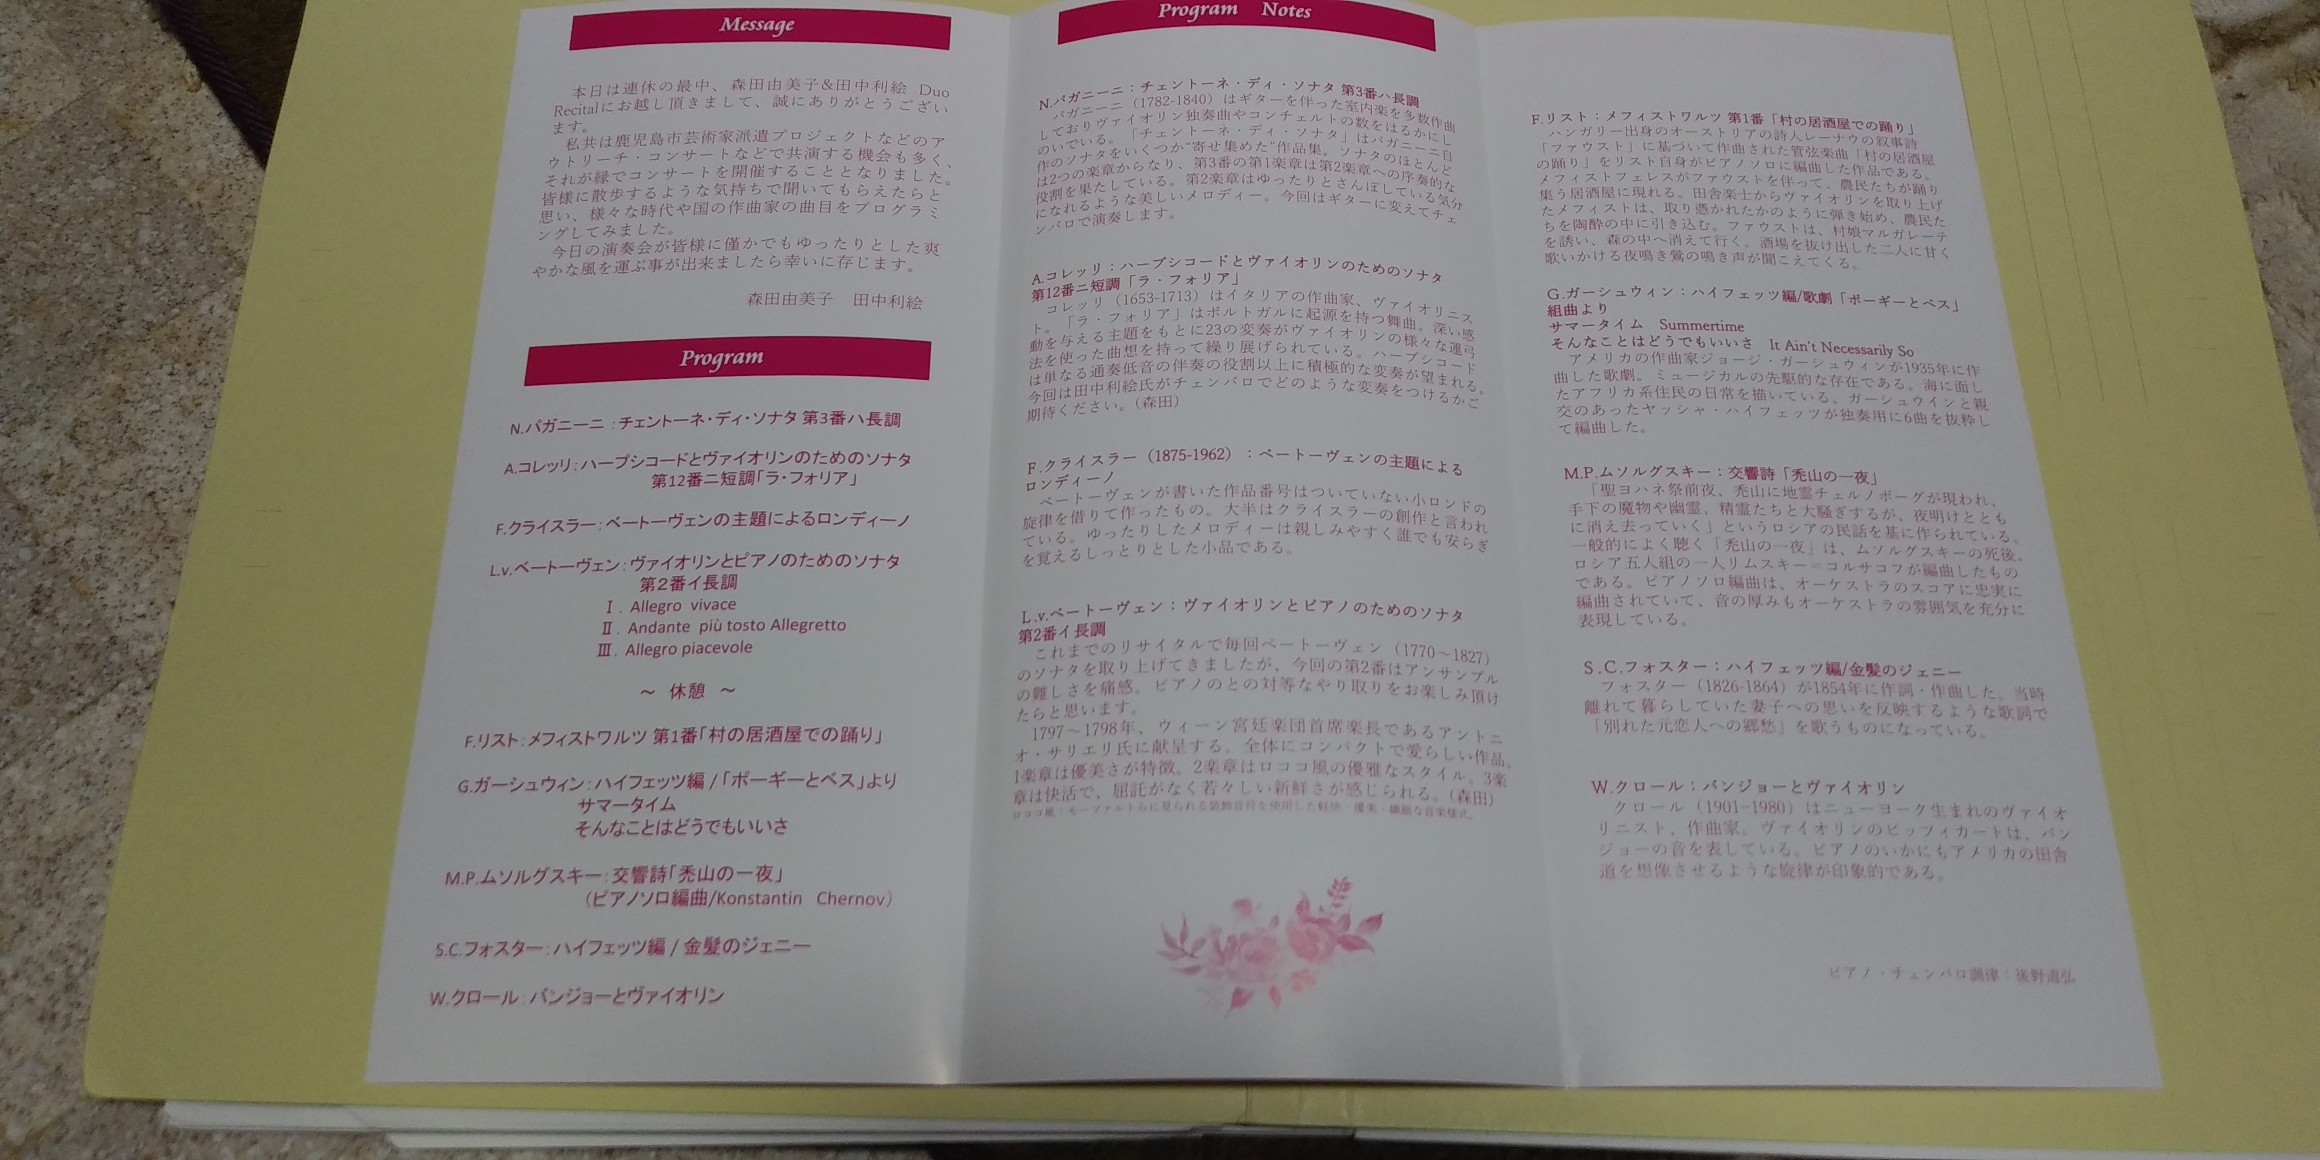 Message
本日は連休の最中、森田由美子&田中利絵 Duo
Recitalにお越し頂きまして、誠にありがとうござい
ます。
私共は鹿児島市芸術家派遣プロジェクトなどのア
ウトリーチ・コンサートなどで共演する機会も多く、
それが縁でコンサートを開催することとなりました。
皆様に散歩するような気持ちで聞いてもらえたらと
思い、様々な時代や国の作曲家の曲目をプログラミ
ングしてみました。
今日の演奏会が皆様に僅かでもゆったりとした爽
やかな風を運ぶ事が出来ましたら幸いに存じます。
森田由美子　田中利絵
Program
N.パガニーニ：チェントーネ・ディ・ソナタ 第3番ハ長調
A.コレッリ：ハープシコードとヴァイオリンのためのソナタ
第12番ニ短調「ラ・フォリア」
F.クライスラー：ベートーヴェンの主題によるロンディーノ
L.v.ベートーヴェン：ヴァイオリンとピアノのためのソナタ
第2番イ長調
Ⅰ. Allegro vivace
Ⅱ. Andante più tosto Allegretto
Ⅲ. Allegro piacevole
～ 休憩 ～
F.リスト：メフィストワルツ 第1番「村の居酒屋での踊り」
G.ガーシュウィン：ハイフェッツ編 /「ポーギーとベス」より
サマータイム
そんなことはどうでもいいさ
M.P.ムソルグスキー：交響詩「禿山の一夜」
（ピアノソロ編曲/Konstantin Chernov）
S.C.フォスター：ハイフェッツ編 / 金髪のジェニー
W.クロール：バンジョーとヴァイオリン
Program Notes
N.パガニーニ：チェントーネ・ディ・ソナタ 第3番ハ長調
パガニーニ（1782-1840）はギターを伴った室内楽を多数作曲
しておりヴァイオリン独奏曲やコンチェルトの数をはるかにし
のいでいる。「チェントーネ・ディ・ソナタ」はパガニーニ自
作のソナタをいくつか"寄せ集めた"作品集。ソナタのほとんど
は2つの楽章からなり、第3番の第1楽章は第2楽章への序奏的な
役割を果たしている。第2楽章はゆったりとさんぽしている気分
になれるような美しいメロディー。今回はギターに変えてチェ
ンバロで演奏します。
A.コレッリ：ハープシコードとヴァイオリンのためのソナタ
第12番ニ短調「ラ・フォリア」
コレッリ（1653-1713）はイタリアの作曲家、ヴァイオリニス
ト。「ラ・フォリア」はポルトガルに起源を持つ舞曲。深い感
動を与える主題をもとに23の変奏がヴァイオリンの様々な運弓
法を使った曲想を持って繰り展げられている。ハープシコード
は単なる通奏低音の伴奏の役割以上に積極的な変奏が望まれる。
今回は田中利絵氏がチェンバロでどのような変奏をつけるかご
期待ください。（森田）
F.クライスラー（1875-1962）：ベートーヴェンの主題による
ロンディーノ
ベートーヴェンが書いた作品番号はついていない小ロンドの
旋律を借りて作ったもの。大半はクライスラーの創作と言われ
ている。ゆったりしたメロディーは親しみやすく誰でも安らぎ
を覚えるしっとりとした小品である。
L.v.ベートーヴェン：ヴァイオリンとピアノのためのソナタ
第2番イ長調
これまでのリサイタルで毎回ベートーヴェン（1770～1827）
のソナタを取り上げてきましたが、今回の第2番はアンサンブル
の難しさを痛感。ピアノのとの対等なやり取りをお楽しみ頂け
たらと思います。
1797～1798年、ウィーン宮廷楽団首席楽長であるアントニ
オ・サリエリ氏に献呈する。全体にコンパクトで愛らしい作品。
1楽章は優美さが特徴。2楽章はロココ風の優雅なスタイル。3楽
章は快活で、屈託がなく若々しい新鮮さが感じられる。（森田）
ロココ風：モーツァルトらに見られる装飾音符を使用した軽快・優美・繊細な音楽様式。
F.リスト：メフィストワルツ 第1番「村の居酒屋での踊り」
ハンガリー出身のオーストリアの詩人レーナウの叙事詩
「ファウスト」に基づいて作曲された管弦楽曲「村の居酒屋
の踊り」をリスト自身がピアノソロに編曲した作品である。
メフィストフェレスがファウストを伴って、農民たちが踊り
集う居酒屋に現れる。田舎楽士からヴァイオリンを取り上げ
たメフィストは、取り憑かれたかのように弾き始め、農民た
ちを陶酔の中に引き込む。ファウストは、村娘マルガレーテ
を誘い、森の中へ消えて行く。酒場を抜け出した二人に甘く
歌いかける夜鳴き鶯の鳴き声が聞こえてくる。
G.ガーシュウィン：ハイフェッツ編/歌劇「ポーギーとベス」
組曲より
サマータイム　Summertime
そんなことはどうでもいいさ　It Ain't Necessarily So
アメリカの作曲家ジョージ・ガーシュウィンが1935年に作
曲した歌劇。ミュージカルの先駆的な存在である。海に面し
たアフリカ系住民の日常を描いている。ガーシュウインと親
交のあったヤッシャ・ハイフェッツが独奏用に6曲を抜粋し
て編曲した。
M.P.ムソルグスキー：交響詩「禿山の一夜」
「聖ヨハネ祭前夜、禿山に地霊チェルノボーグが現われ、
手下の魔物や幽霊、精霊たちと大騒ぎするが、夜明けととも
に消え去っていく」というロシアの民話を基に作られている。
一般的によく聴く「禿山の一夜」は、ムソルグスキーの死後、
ロシア五人組の一人リムスキー＝コルサコフが編曲したもの
である。ピアノソロ編曲は、オーケストラのスコアに忠実に
編曲されていて、音の厚みもオーケストラの雰囲気を充分に
表現している。
S.C.フォスター：ハイフェッツ編/金髪のジェニー
フォスター（1826-1864）が1854年に作詞・作曲した。当時
離れて暮らしていた妻子への思いを反映するような歌詞で
「別れた元恋人への郷愁」を歌うものになっている。
W.クロール：バンジョーとヴァイオリン
クロール（1901-1980）はニューヨーク生まれのヴァイオ
リニスト、作曲家。ヴァイオリンのピッツィカートは、バン
ジョーの音を表している。ピアノのいかにもアメリカの田舎
道を想像させるような旋律が印象的である。
ピアノ・チェンバロ調律：後野道弘